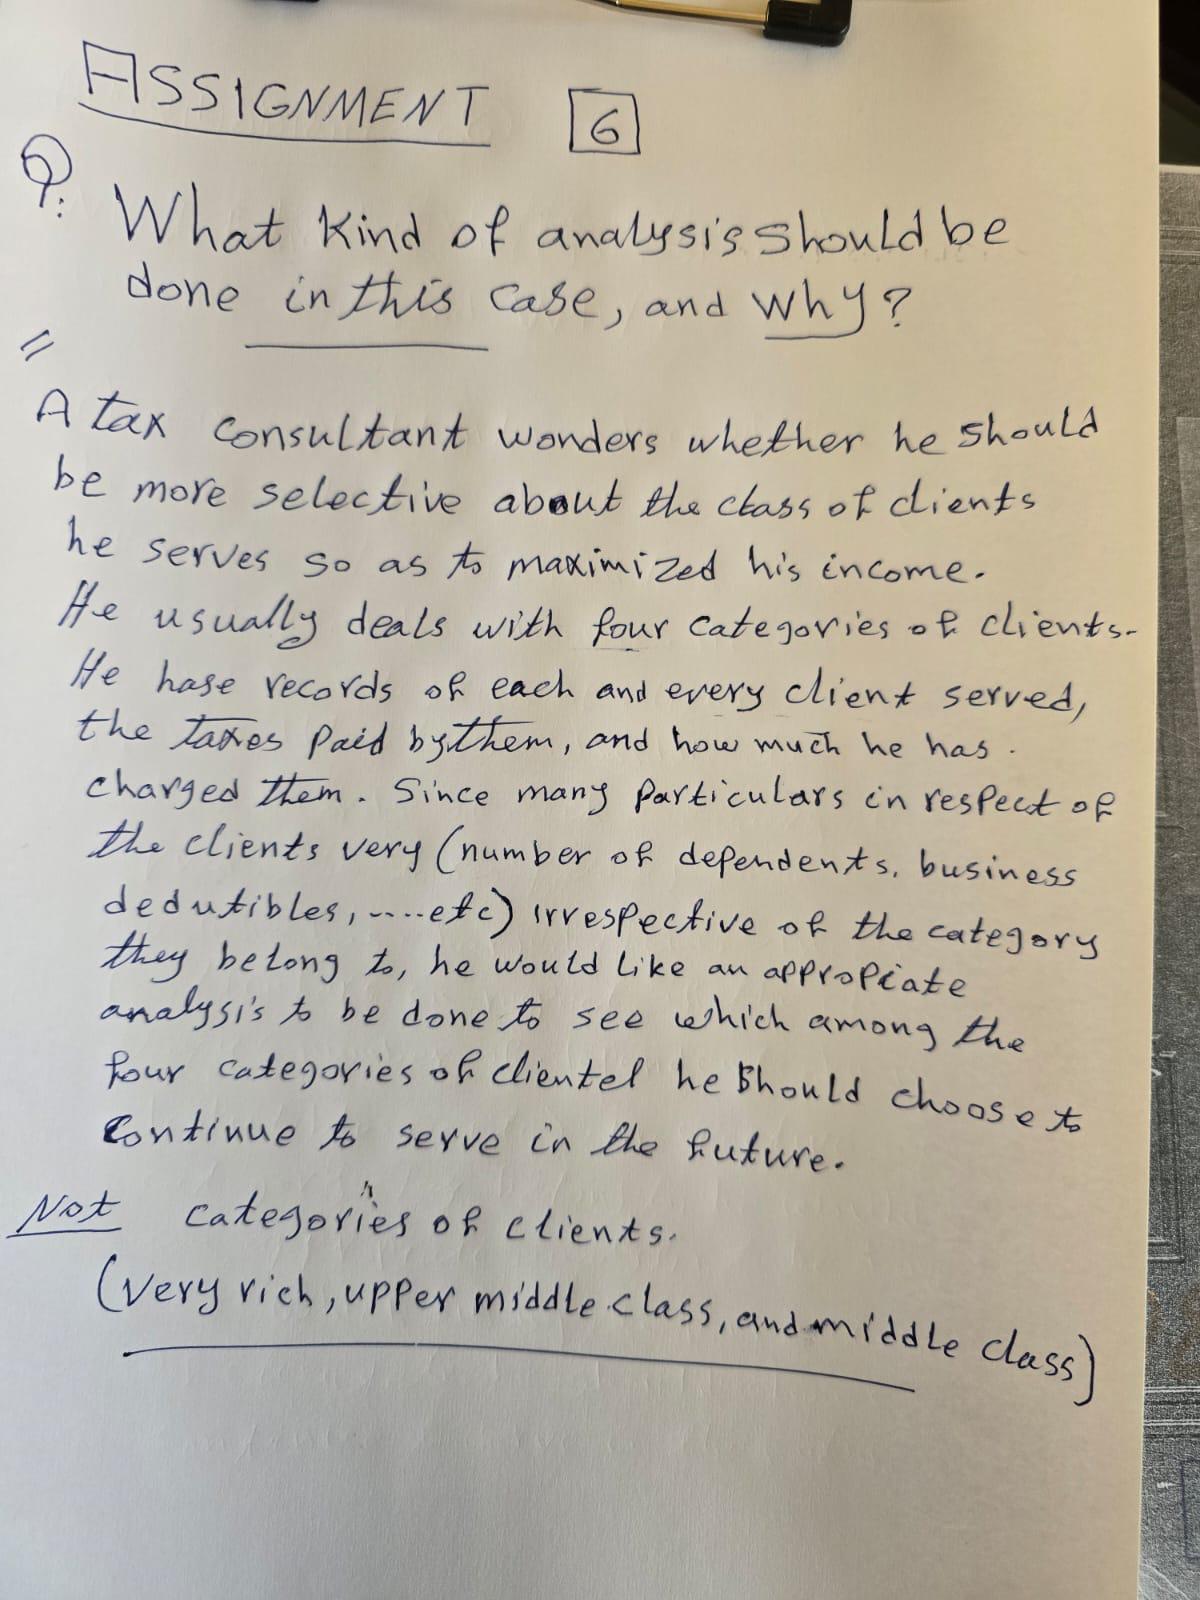 ASSIGNMENT 6
Q: What Kind of analysis should be
done in this case, and why?
A tax consultant wonders whether he should
be more selective about the class of clients
he serves so as to maximized his income.
He usually deals with four categories of clients.
He hase records of each and every client served,
the taxes paid by them, and how much he has.
charged them. Since many particulars in respect of
the clients very (number of dependents, business
dedutibles, .....etc) irrespective of the category
they belong to, he would like an appropiate
analysis to be done to see which among the
four categories of clientel he should choose to
continue to serve in the future.
Not categories of clients.
(very rich, upper middle class, and middle class)